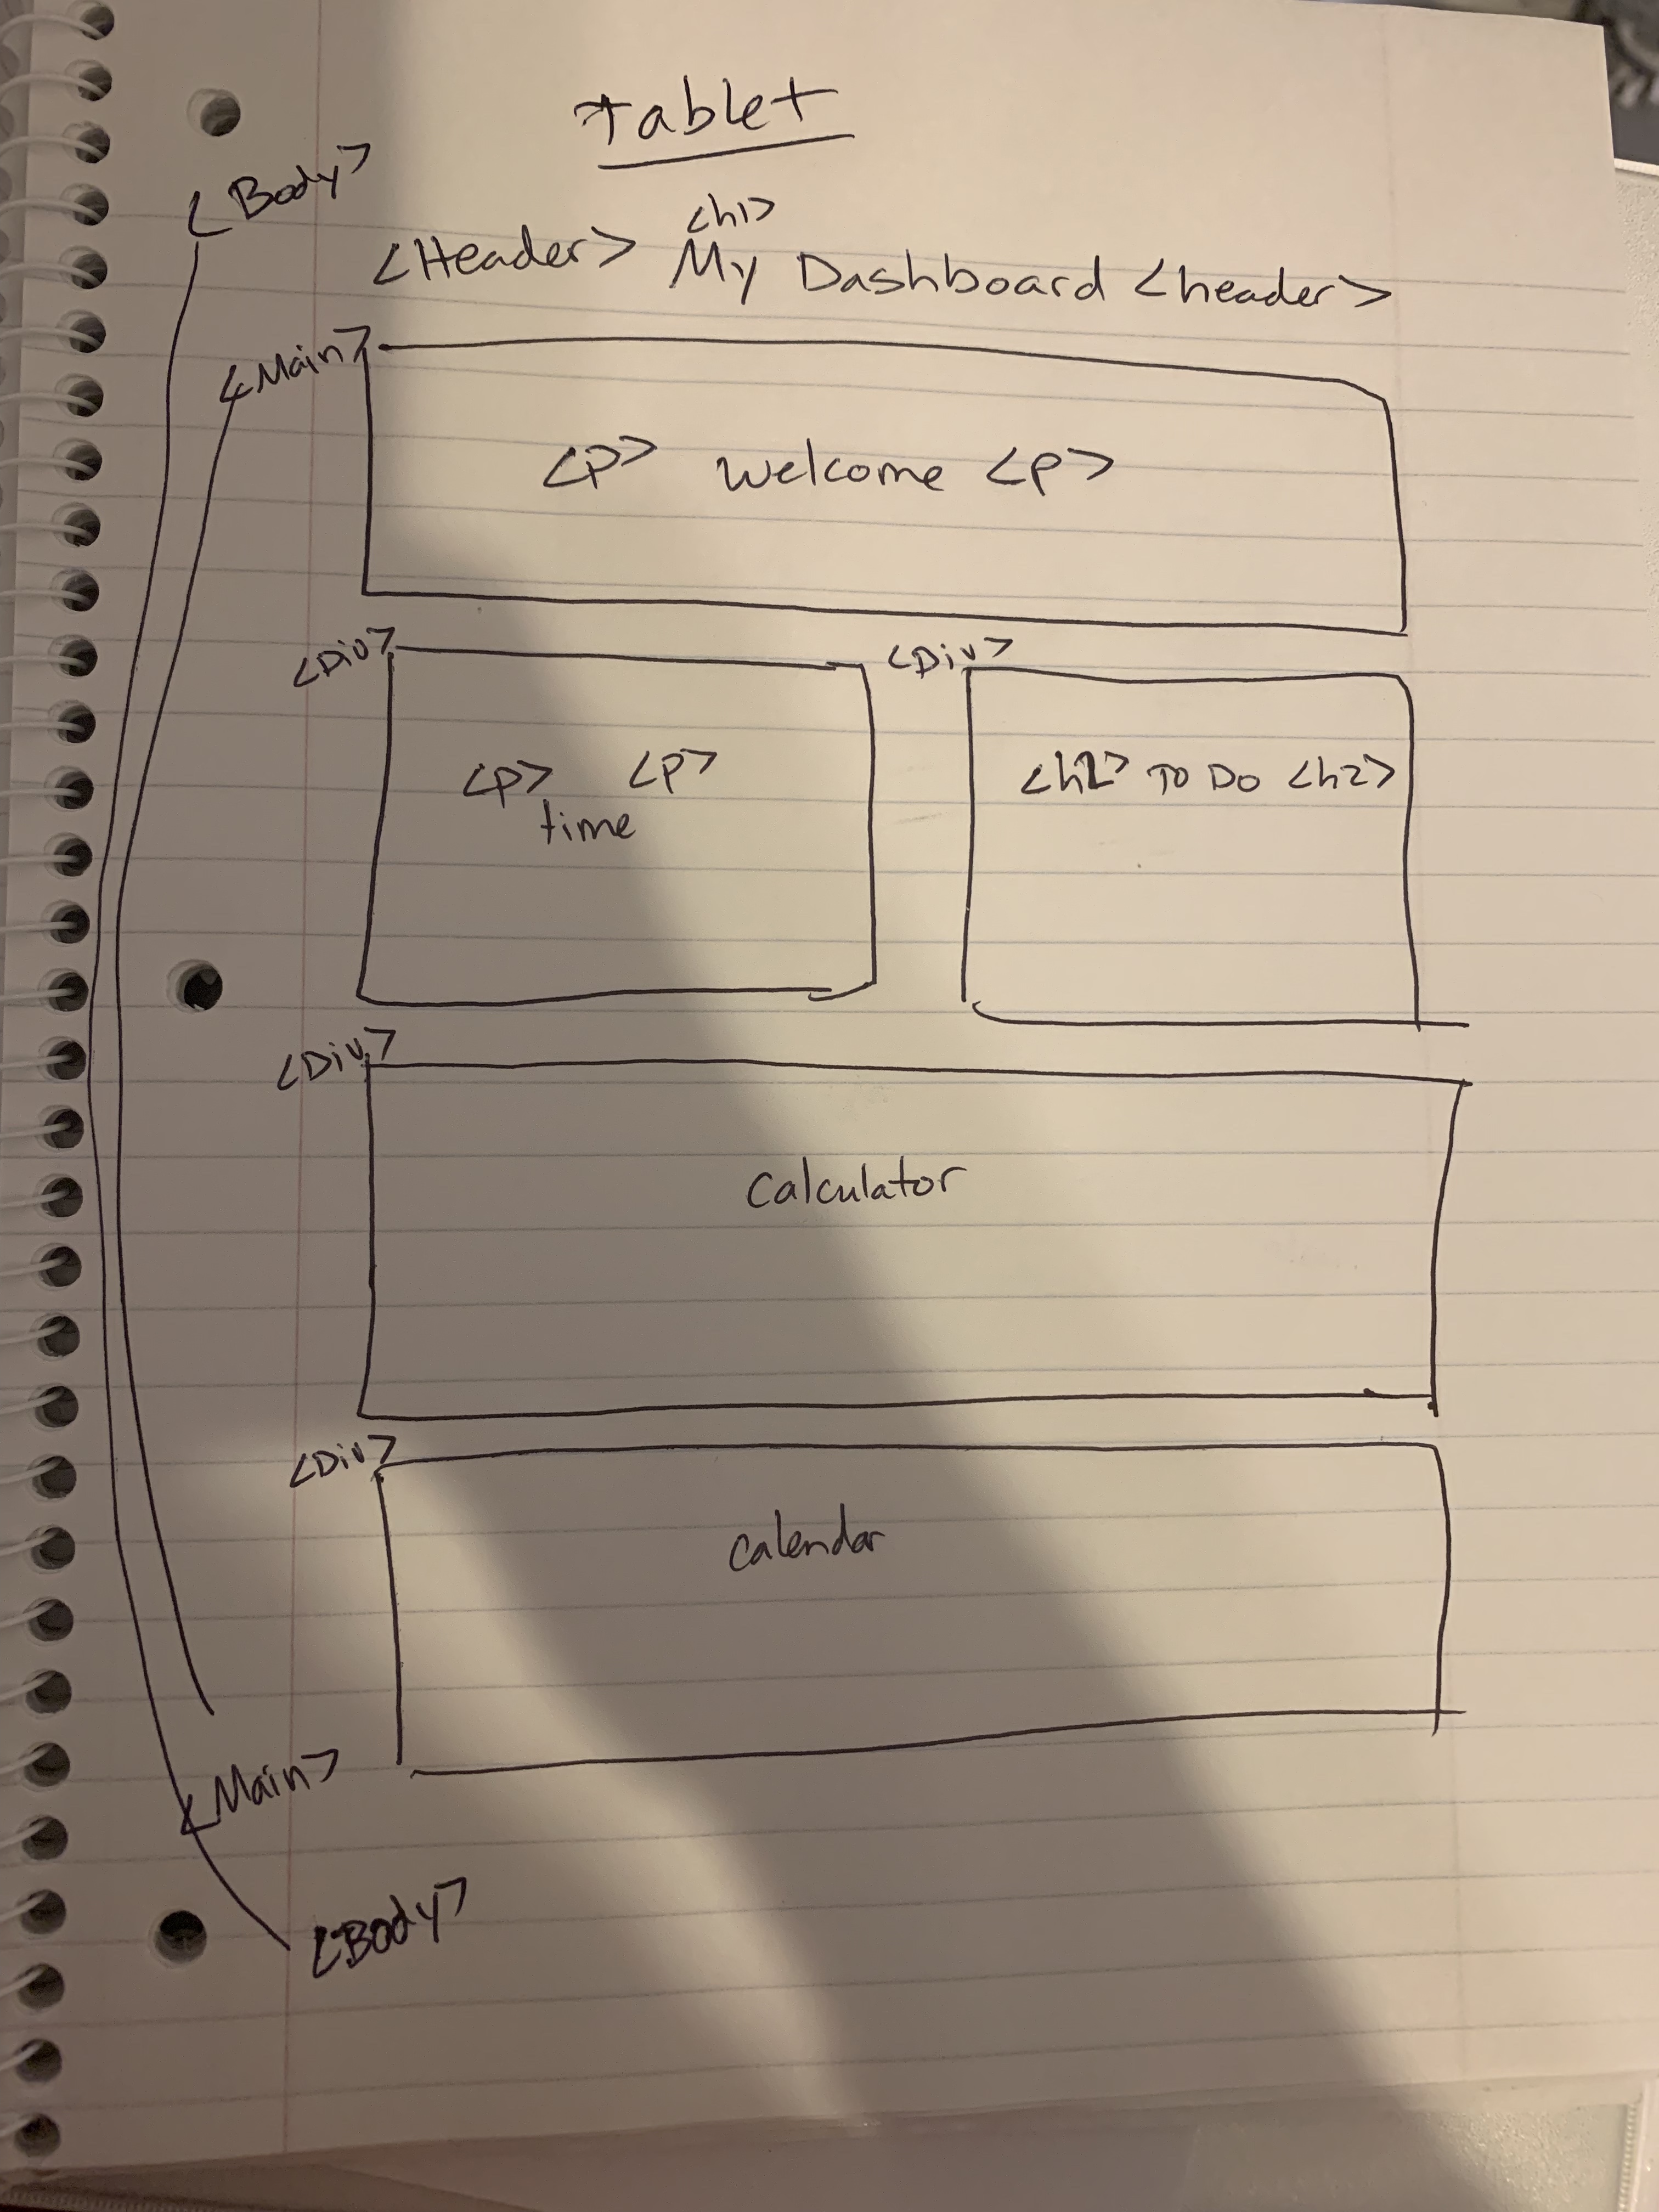 tablet
<Body>
<h1>
<Header> My Dashboard <header>
<Main>
<p> welcome <p>
<Div> <Div>
<p> <p>
time
<h2> To Do <h2>
<Div>
calculator
<Div>
calendar
<Main>
<Body>